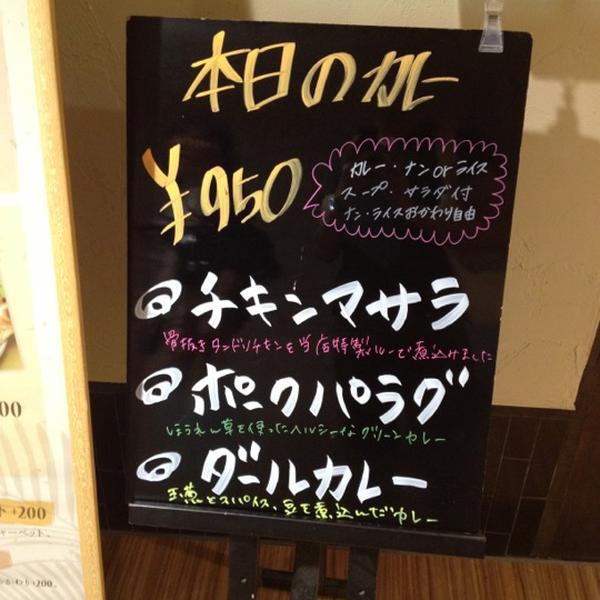 本日のカレー
¥950
カレー・ナンorライス
スープ・サラダ付
ナン・ライスおかわり自由
◎チキンマサラ
骨抜きタンドリチキンを当店特製ルーで煮込みました
◎ポークパラグ
ほうれん草を使ったヘルシーなグリーンカレー
◎ダールカレー
玉葱とスパイス、豆を煮込んだカレー
00
+200
ャーベット、
かわり+200